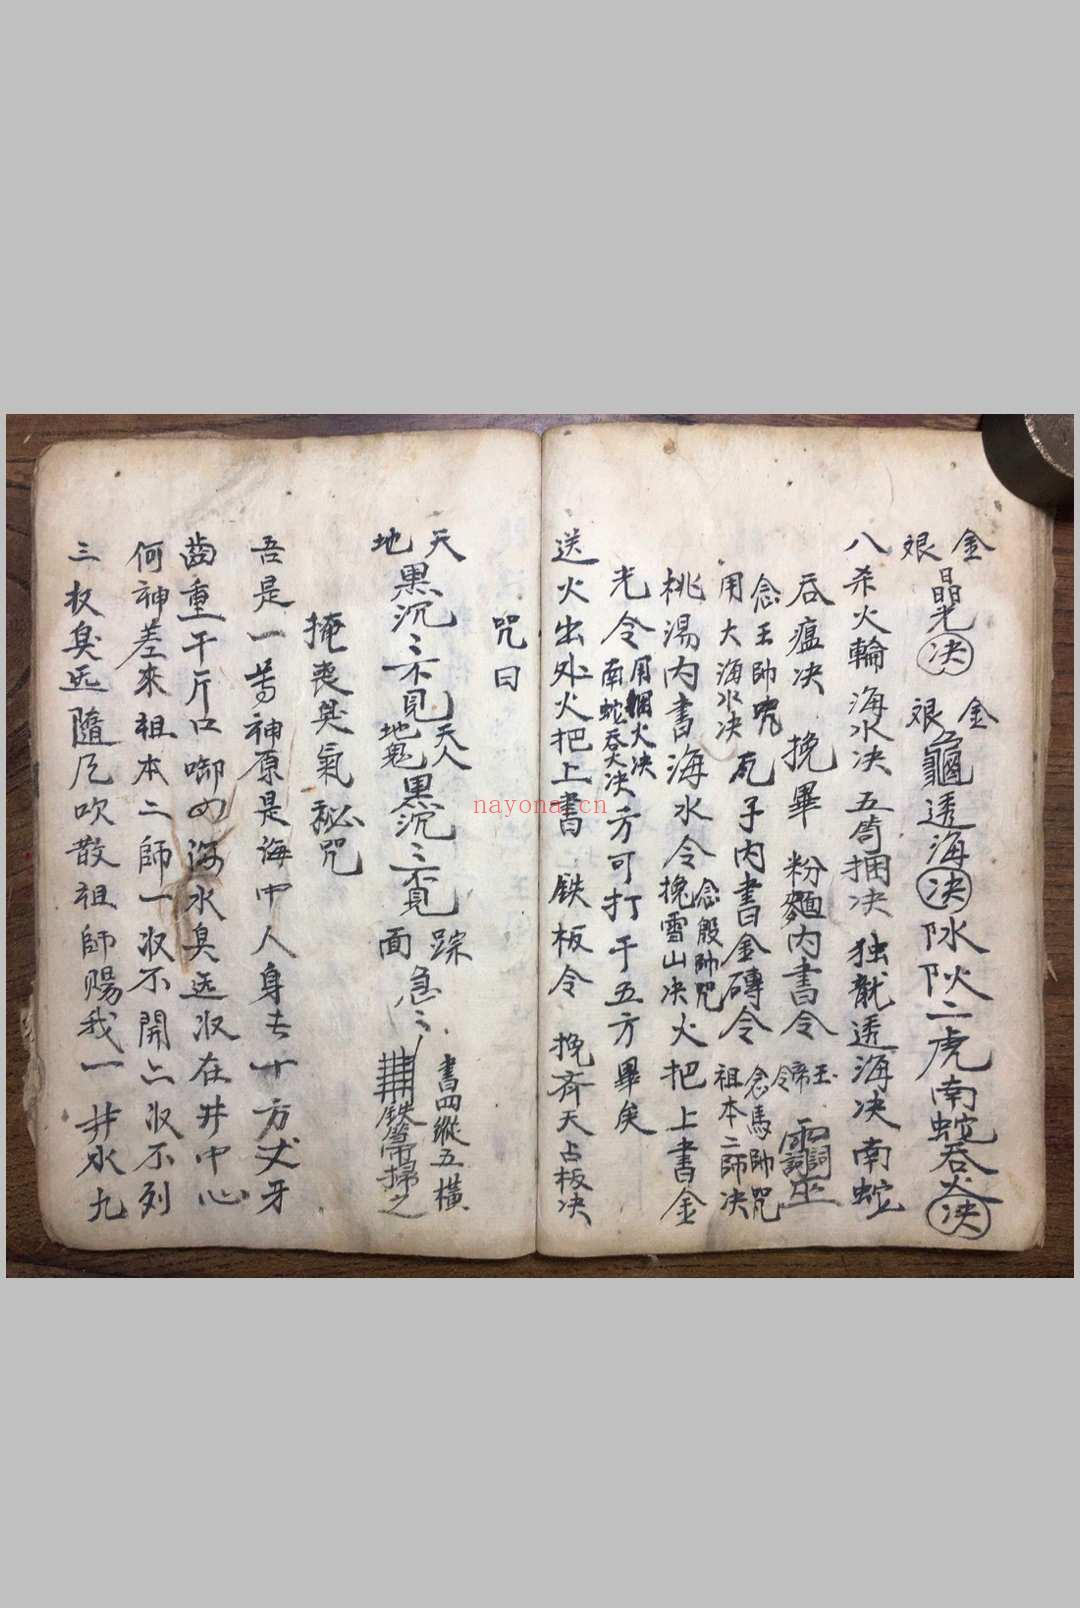 金艰晶光决 金艰龜透海决 㳄炏二虎南蛇吞火决
八杀火輪 海水决 五雷捆决 独龍透海决 南蛇
吞瘟决 挽畢 粉麵内書令
念王帥咒用大海水决 瓦子内書金磚令 念馬帥咒祖本二師决
桃湯内書海水令 念殷帥咒挽雪山决 火把上書金
光令 用綑火决南蛇吞火决 方可打于五方畢矣
送火出外火把上書 铁板令 挽齐天占板决
咒曰
天地黑沉〻不見 天人地鬼黑沉〻不見 踪面急〻 書四縱五橫 铁箒掃之
掩喪臭氣秘咒
吾是一 神原是海中人身去十方丈牙
齒重千斤口啣四海水臭 收在井中心
何神差來祖本二師一收不開二收不列
三 臭 隨 吹散祖師賜我一井水九
nayona.cn